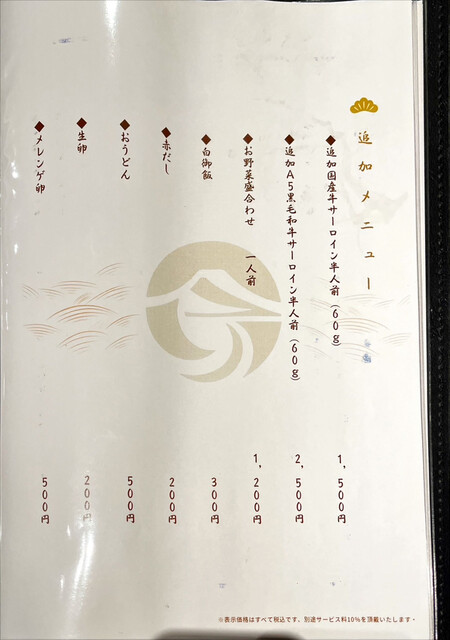 追加メニュー
◆追加国産牛サーロイン半人前（60g） 1,500円
◆追加A5黒毛和牛サーロイン半人前（60g） 2,500円
◆お野菜盛合わせ 一人前 1,200円
◆白御飯 300円
◆赤だし 200円
◆おうどん 500円
◆生卵 200円
◆メレンゲ卵 500円
※表示価格はすべて税込です。別途サービス料10%を頂戴いたします・